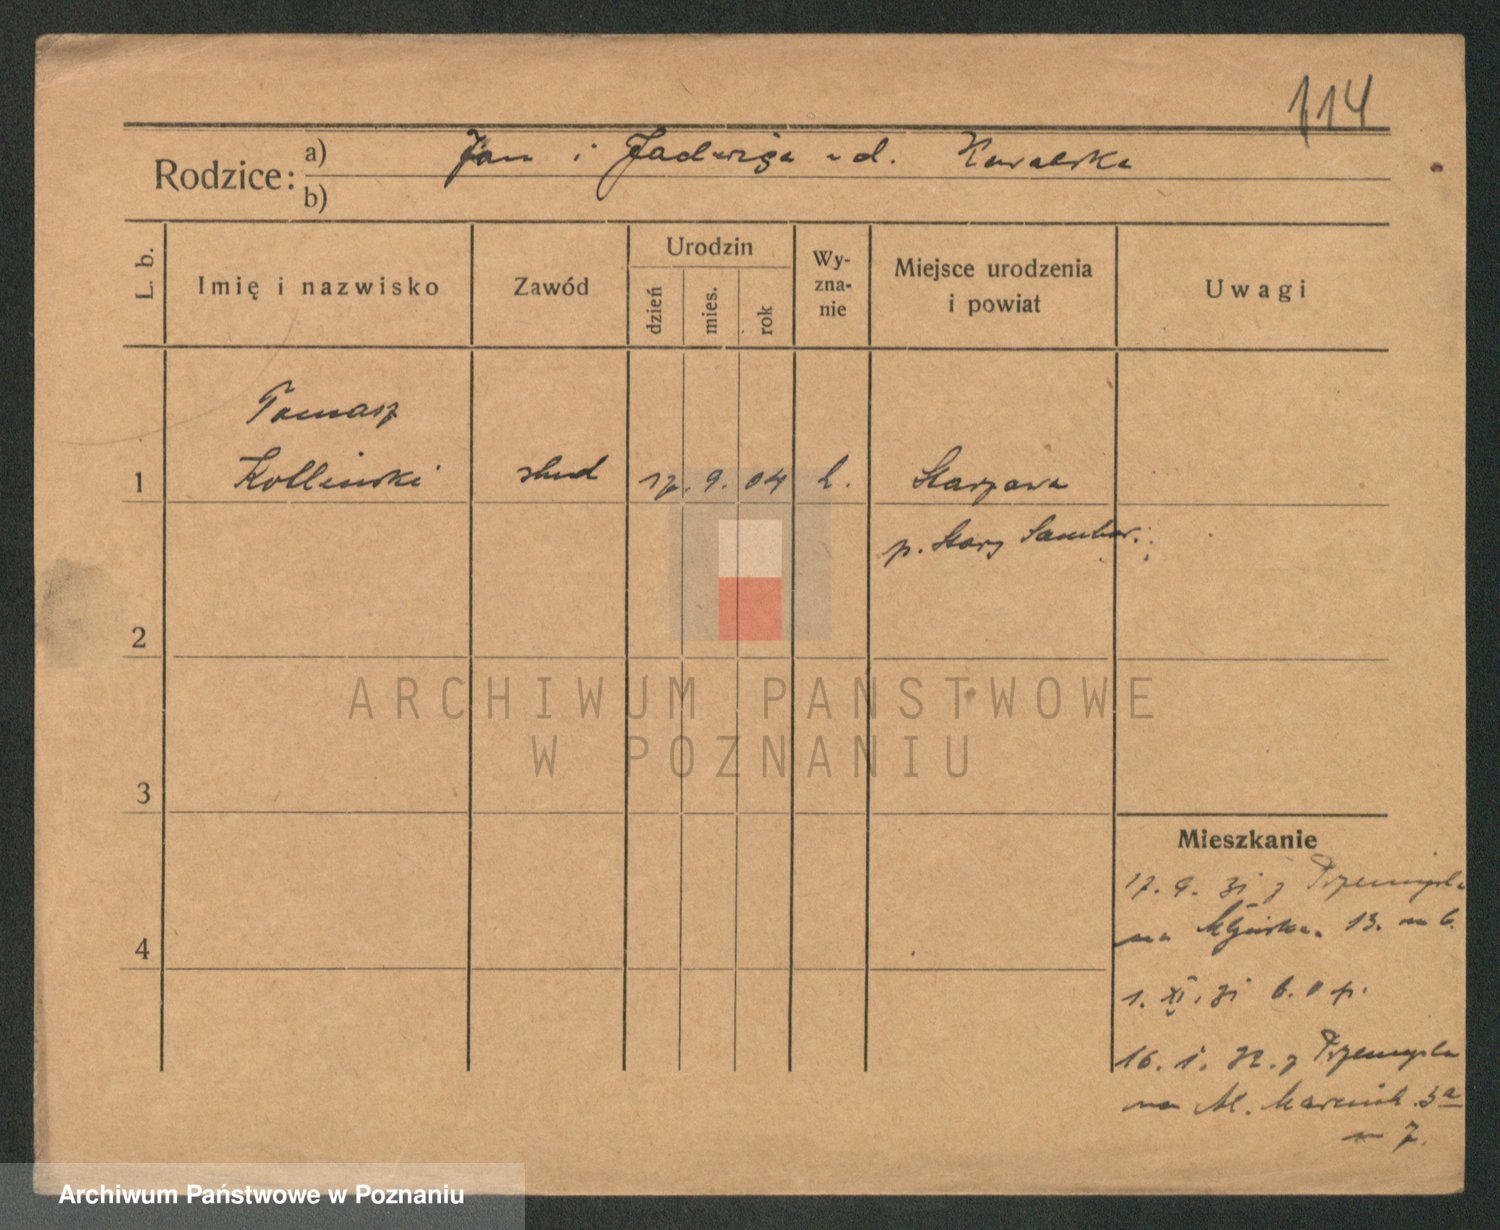 114
Rodzice: a) Jan i Jadwiga z d. Kowalska
b)
L. b.
Imię i nazwisko
Zawód
Urodzin
dzień
mies.
rok
Wy-
zna-
nie
Miejsce urodzenia
i powiat
Uwagi
Tomasz
1 Kolliński stud 17. 9. 04 Starzawa
p. Stary Sambor.
2
ARCHIWUM PAŃSTWOWE
W POZNANIU
3
Mieszkanie
17. 9. 31 z Przemyśla
na 13. m 6.
4
1. XI. 31 b. o p.
16. 1. 32. z Przemyśla
na Al. Marcink. 3a
m 7.
Archiwum Państwowe w Poznaniu